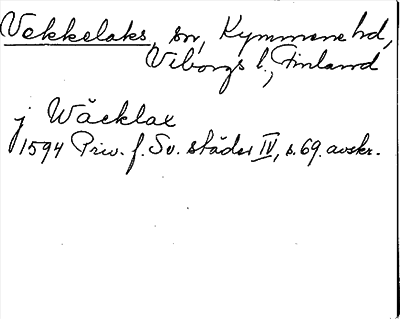 Vekkelaks, sn, Kymmene hd,
Viborgs l., Finland
j Wäcklax
1594 Priv. f. Sv. städer IV, s. 69. avskr.